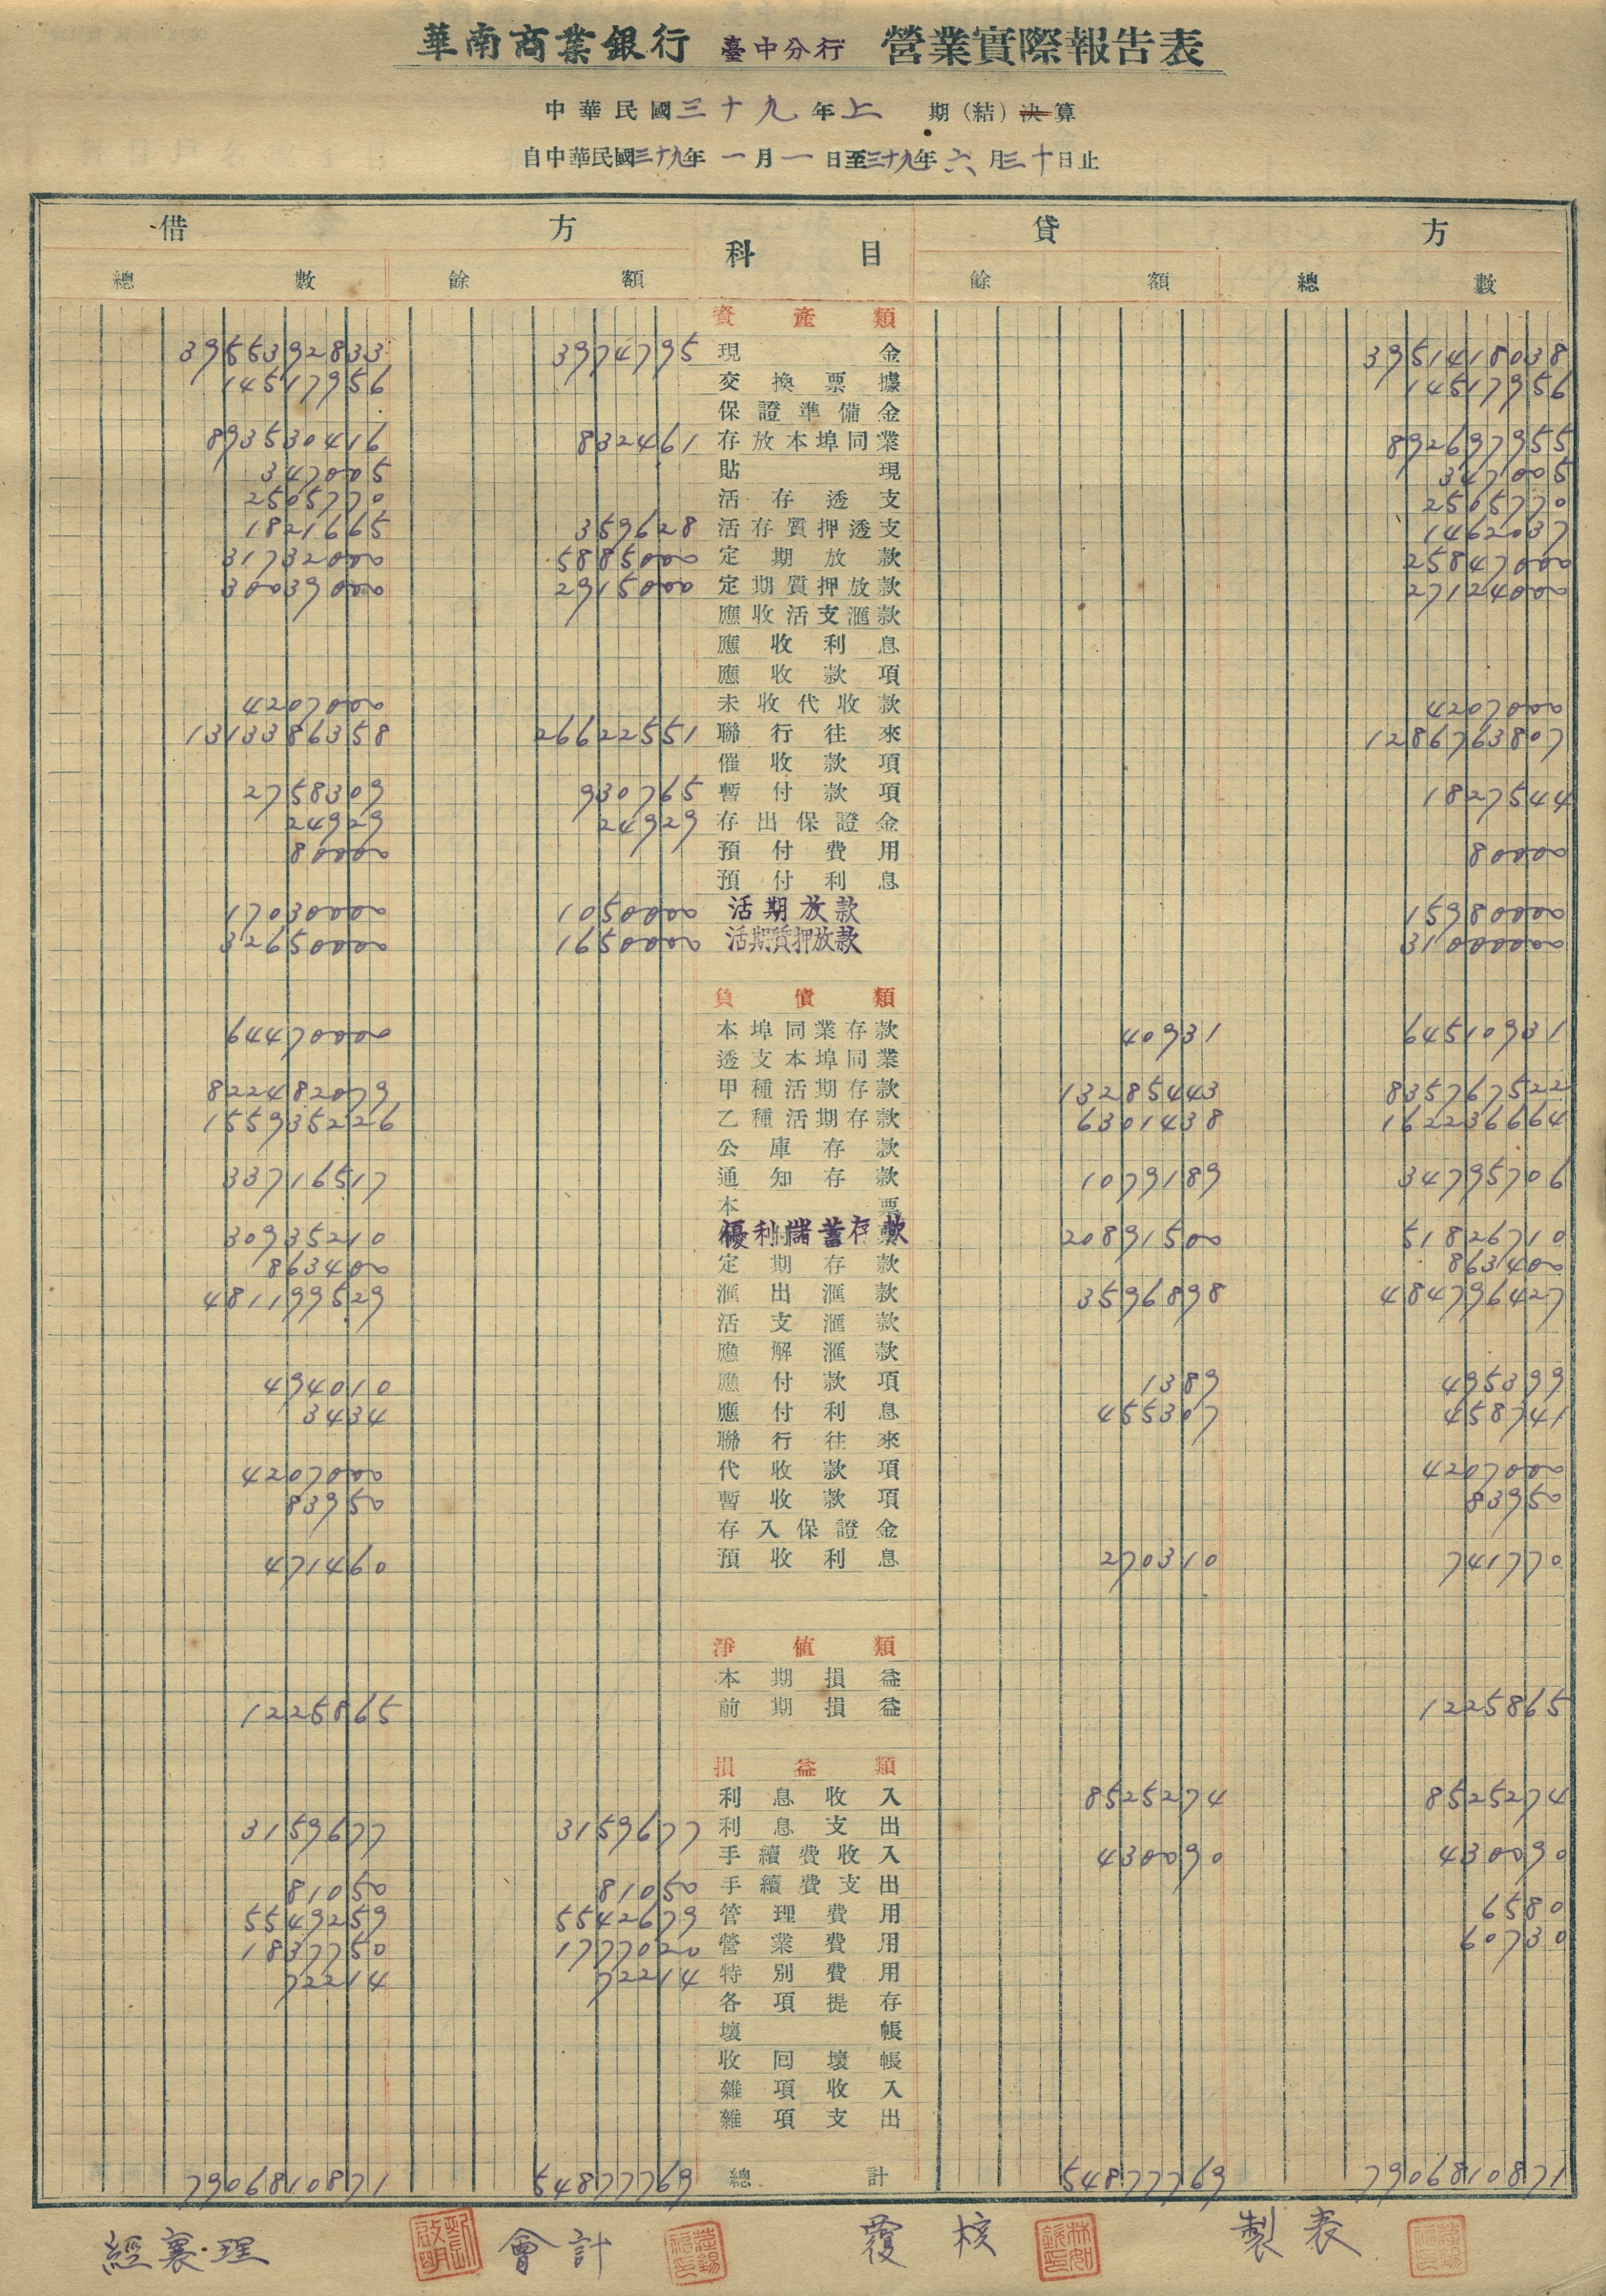 華南商業銀行 臺中分行 營業實際報告表
中華民國三十九年上 期(結)決算
自中華民國三十九年一月一日至三十九年六月三十日止
借 方 科目 貸 方
總數 餘額 餘額 總數
資產類
3955392833 3974795 現金 3951418038
14517956 交換票據 14517956
保證準備金
893530416 832461 存放本埠同業 892697955
347005 貼現 347005
2505770 活存透支 2505770
1821665 359628 活存質押透支 1462037
31732000 5885000 定期放款 25847000
30039000 2915000 定期質押放款 27124000
應收活支滙款
應收利息
應收款項
4207000 未收代收款 4207000
1313386358 26622551 聯行往來 1286763807
催收款項
2758309 930765 暫付款項 1827544
24929 24929 存出保證金
80000 預付費用 80000
預付利息
17030000 1050000 活期放款 15980000
32650000 1650000 活期質押放款 31000000
負債類
64470000 本埠同業存款 40931 64510931
透支本埠同業
822482079 甲種活期存款 13285443 835767522
155935226 乙種活期存款 6301438 162236664
公庫存款
33716517 通知存款 1079189 34795706
本票
30935210 優利儲蓄存款 20891500 51826710
863400 定期存款 863400
481199529 滙出滙款 3596898 484796427
活支滙款
應解滙款
494010 應付款項 1389 495399
3434 應付利息 455307 458741
聯行往來
4207000 代收款項 4207000
83950 暫收款項 83950
存入保證金
471460 預收利息 270310 741770
淨值類
本期損益
1225865 前期損益 1225865
損益類
利息收入 8525274 8525274
3159677 3159677 利息支出
手續費收入 430090 430090
81050 81050 手續費支出
5549259 5542679 管理費用 6580
1837750 1777020 營業費用 60730
72214 72214 特別費用
各項提存
壞帳
收回壞帳
雜項收入
雜項支出
7906810871 54877769 總計 54877769 7906810871
經襄理 會計 覆核 製表